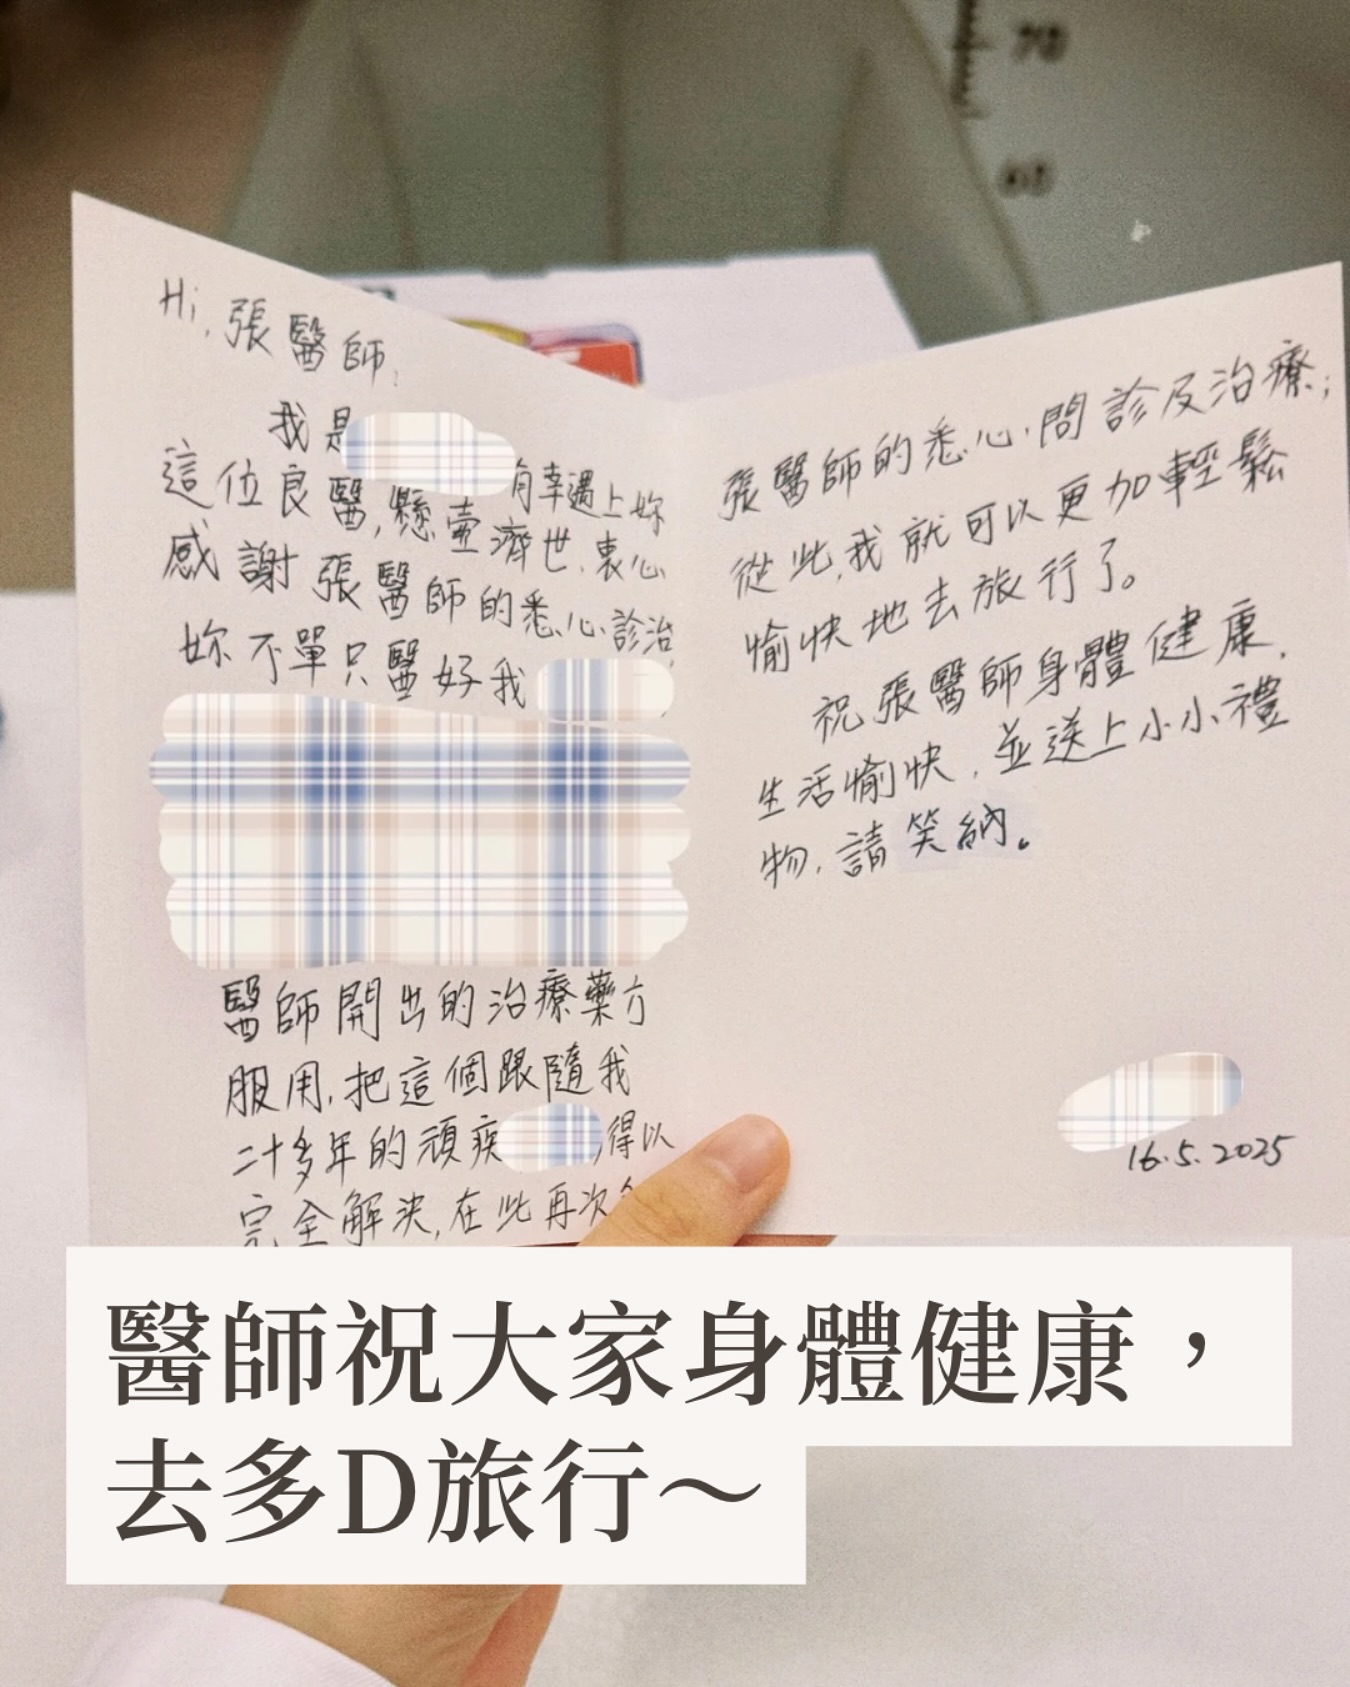 70
60
Hi, 張醫師,
我是
有幸遇上妳
這位良醫,懸壺濟世,衷心
感謝張醫師的悉心診治,
妳不單只醫好我
醫師開出的治療藥方
服用,把這個跟隨我
二十多年的頑疾 得以
完全解決,在此再次
張醫師的悉心問診及治療;
從此,我就可以更加輕鬆
愉快地去旅行了。
祝張醫師身體健康,
生活愉快,並送上小小禮
物,請笑納。
16.5.2025
醫師祝大家身體健康，
去多D旅行～